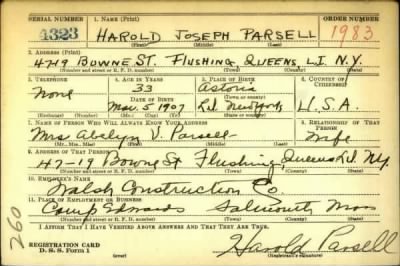 SERIAL NUMBER 1. NAME (Print) ORDER NUMBER
4323 HAROLD JOSEPH PARSELL 1983
(First) (Middle) (Last)
2. ADDRESS (Print)
4719 BOWNE ST. FLUSHING QUEENS L.I. N.Y.
(Number and street or R. F. D. number) (Town) (County) (State)
3. TELEPHONE 4. AGE IN YEARS 5. PLACE OF BIRTH 6. COUNTRY OF CITIZENSHIP
None 33 Astoria
DATE OF BIRTH (Town or county)
Mar. 5 1907 L.I. New York U.S.A.
(Mo.) (Day) (Yr.) (State or country)
7. NAME OF PERSON WHO WILL ALWAYS KNOW YOUR ADDRESS 8. RELATIONSHIP OF THAT PERSON
Mrs V. Parsell Wife
(Mr., Mrs., Miss) (First) (Middle) (Last)
9. ADDRESS OF THAT PERSON
47-19 Bowne St Flushing Queens L.I. N.Y.
(Number and street or R. F. D. number) (Town) (County) (State)
10. EMPLOYER'S NAME
Walsh Construction Co.
11. PLACE OF EMPLOYMENT OR BUSINESS
Camp Edwards Mass
(Number and street or R. F. D. number) (Town) (County) (State)
I AFFIRM THAT I HAVE VERIFIED ABOVE ANSWERS AND THAT THEY ARE TRUE.
260
REGISTRATION CARD
D. S. S. Form 1
Harold Parsell
(Registrant's signature)